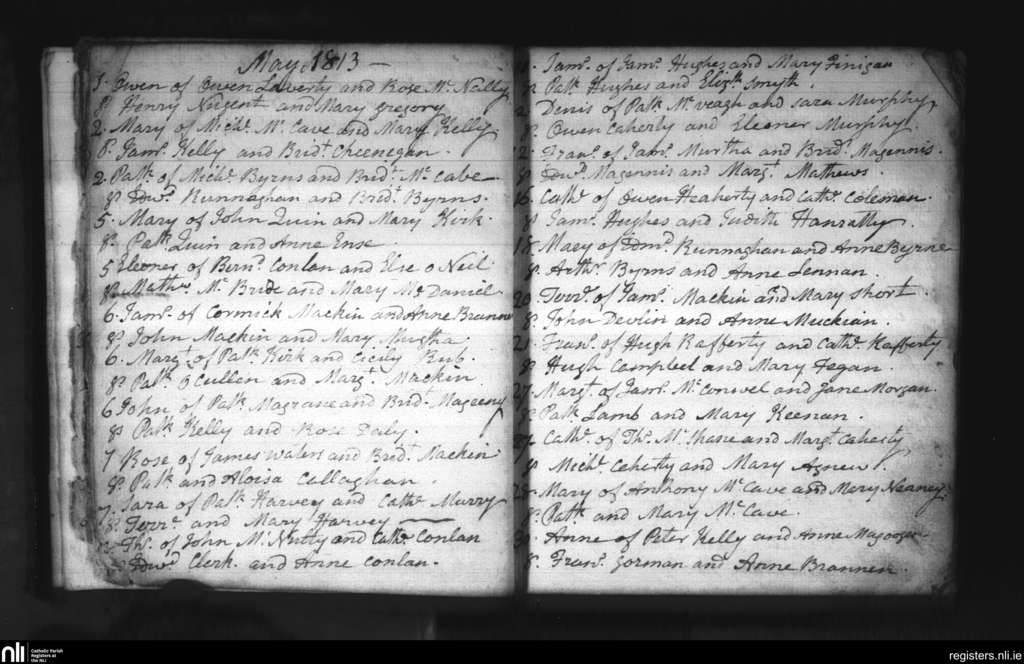 May 1813 —
1. Owen of Owen Laverty and Rose Mc Nally
Sp Henry Nugent and Mary Gregory
2. Mary of Michl. Mc Cave and Mary Kelly
Sp. Jams. Kelly and Bridt. Cheenegan.
2. Patk. of Michl. Byrns and Bridt. Mc Cabe
Sp Edwd. Runnaghan and Bridt. Byrns.
5. Mary of John Quin and Mary Kirk.
Sp. Patk. Quin and Anne Ense.
5 Eleoner of Bernd. Conlan and Else o Neil
Sp Mathw. Mc Bride and Mary Mc Daniel
6. Jams. of Cormick Mackin and Anne Brannon
Sp John Mackin and Mary Murtha
6. Margt. of Patk. Kirk and Cicily Bub.
Sp. Patk. O Cullen and Margt. Mackin.
6 John of Patk. Magrane and Brid.
Sp Patk. Kelly and Rose Daly.
7 Rose of James Waters and Bridt. Mackin
Sp. Patk and Aloisa Callaghan.
7. Sara of Patk. Harvey and Cathe. Murry
Sp Terre. and Mary Harvey —
Ths. of John Mc Nutty and Cathe. Conlan
Edwd. Clerk. and Anne Conlan.
Jams. of Jams. Hughes and Mary Finigan
Patk. Hughes and Elizth. Smyth.
Denis of Patk. Mc veagh and Sara Murphy
Sp. Owen Caherty and Eleoner Murphy.
12. Frans. of Jams. Murtha and Bridt. Magennis.
Sp Edwd. Magennis and Margt. Mathews.
16. Cathe. of Owen Heaherty and Cathe. Coleman
Sp Jams. Hughes and Judith Hanratty
18. Mary of Edmd. Runnaghan and Anne Byrne
Sp. Arthr. Byrns and Anne Lennan.
20. Terre. of Jams. Mackin and Mary Short.
Sp. John Devlin and Anne Muckian.
21. Frans. of Hugh Rafferty and Cathe. Rafferty
Sp Hugh Campbel and Mary Fegan.
27. Margt. of Jams. Mc Conwel and Jane Morgan.
Sp Patk. Lamb and Mary Keenan.
27. Cathe. of Ths. Mc Shane and Margt. Caherty
Sp Michl. Caherty and Mary Agnew.
Mary of Anthony Mc Cave and Mary Heaney
Sp. Patk. and Mary Mc Cave.
30. Anne of Peter Kelly and Anne
Sp. Frans. Gorman and Anne Brannen.
nli
Catholic Parish
Registers at
the NLI
registers.nli.ie